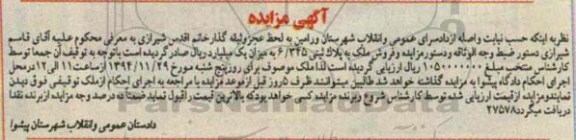 آگهی مزایده
نظر به اینکه حسب نیابت واصله از دادسرای عمومی وانقلاب شهرستان ورامین به لحظ عجز وثیقه گذار خانم اقدس شیرازی به معرفی محکوم علیه آقای قاسم
شیرازی دستور ضبط وجه الوثاقه و دستور مزایده و فروش ملک به پلاک ثبتی ۶/۳۴۵ به میزان یک میلیارد ریال صادر گردیده است باتوجه به توقیف آن جمعا توسط
کارشناس منتخب مبلغ ۱۰۵۰۰۰۰۰۰۰ ریال ارزیابی گردیده است لذا ملک موصوف برای روز پنج شنبه مورخ ۱۳۹۴/۱۱/۲۹ از ساعت ۱۱ الی ۱۲ در محل
اجرای احکام دادگاه پیشوا به مزایده گذاشت خواهد شد طالبین میتوانند ظرف ۵ روز قبل از موعد مزایده با مراجعه به اجرای احکام از ملک توقیفی فوق دیدن
نمایند و مزایده از قیمت ارزیابی شده توسط کارشناس شروع و برنده مزایده کسی خواهد بود که بالاترین قیمت را قبول نماید ضمنا ده درصد وجه مزایده از برنده نقدا
دریافت میگردد ۲۷۵۷۸
دادستان عمومی وانقلاب شهرستان پیشوا